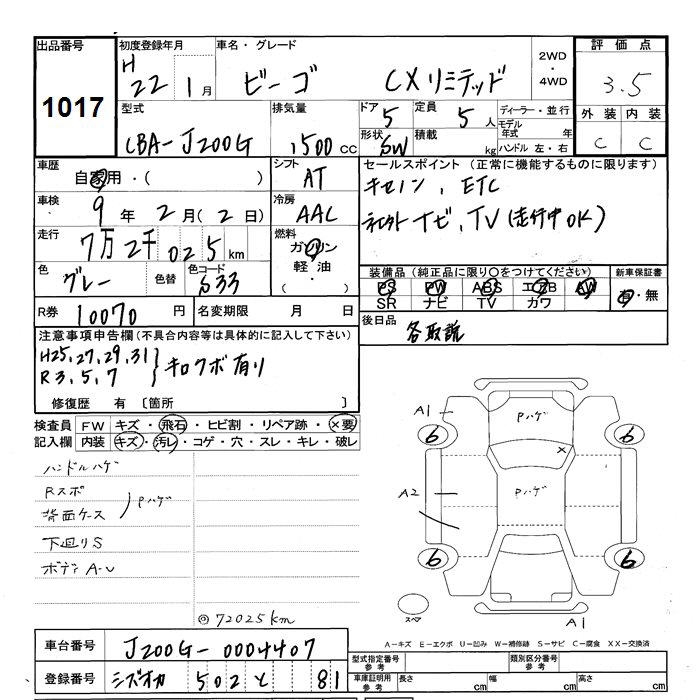 出品番号 1017
初度登録年月 H 22 1月
車名・グレード ビーゴ CXリミテッド
2WD・4WD
評価点 3.5
型式 CBA-J200G
排気量 1500cc
ドア 5
定員 5人
形状 SW
積載 kg
ディーラー・並行
モデル年式 年
ハンドル 左・右
外装 内装
C C
車歴 自家用・( )
シフト AT
車検 9年2月(2日)
冷房 AAC
走行 7万2千025km
燃料 ガソリン 軽油・( )
色 グレー
色替
色コード S33
R券 10070円
名変期限 月 日
セールスポイント(正常に機能するものに限ります)
キセノン、ETC
ナビ、TV(走行中OK)
装備品(純正品に限り○をつけてください)
PS PW ABS エアB AW
SR ナビ TV カワ
新車保証書 有・無
後日品 各取説
注意事項申告欄(不具合内容等は具体的に記入して下さい)
H25,27,29,31
R3,5,7
キロクボ有り
修復歴 有〔箇所 〕
検査員記入欄
FW キズ・飛石・ヒビ割・リペア跡・×要
内装 キズ・汚レ・コゲ・穴・スレ・キレ・破レ
ハンドルハゲ
Rスポ
背面ケース
Pハゲ
下廻りS
ボディA-U
◎72025km
A1
Pハゲ
6 6
×
A2
Pハゲ
6 6
スペア
A1
A-キズ E-エクボ U-凹み W-補修跡 S-サビ C-腐食 XX-交換済
車台番号 J200G-0004407
登録番号 シズオカ 502 と 81
型式指定番号 参考
類別区分番号 参考
車庫証明用 参考
長さ cm
幅 cm
高さ cm